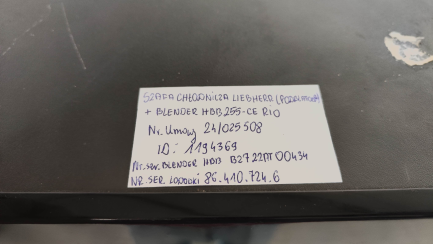 SZAFA CHŁODNICZA LIEBHERR
+ BLENDER HBB 255-CE RIO
Nr. Umowy 24/025508
ID: 1194369
Nr. ser. BLENDER HBB B2722PT00434
NR. SER. LODÓWKI 86.410.724.6